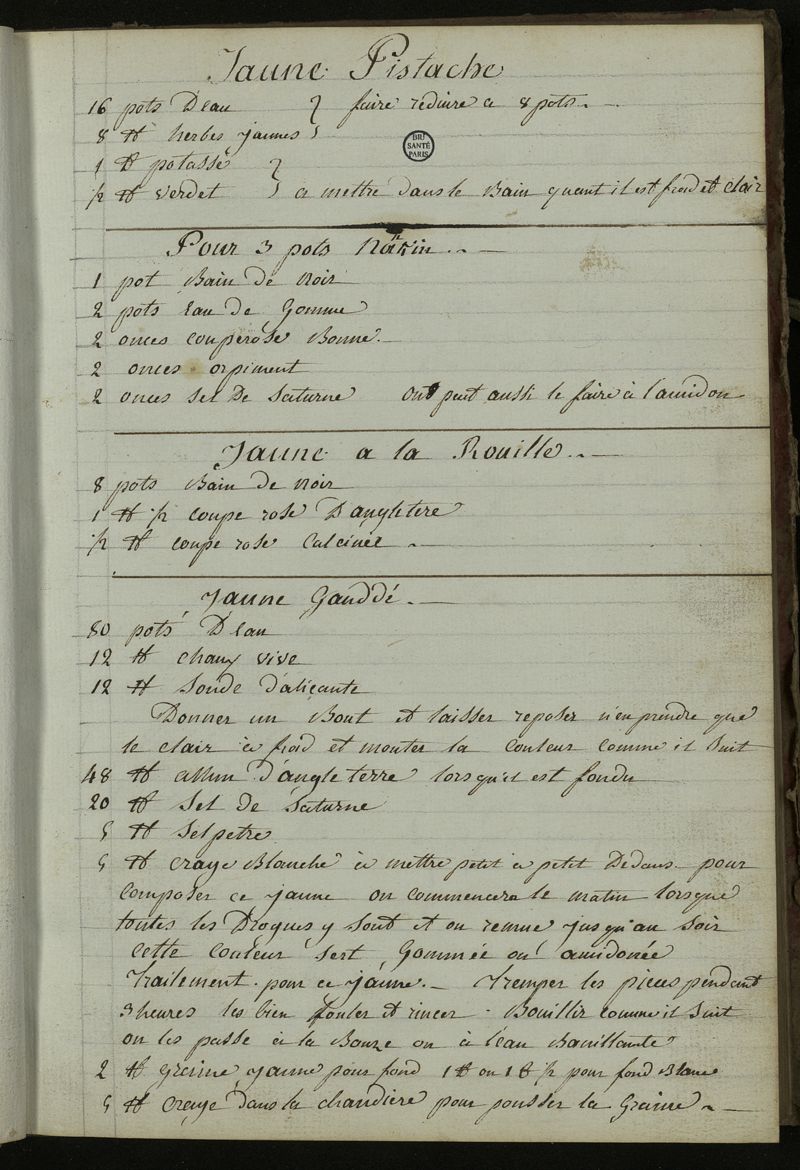 Jaune Pistache
16 pots Deau } faire reduire a 8 pots
8 ℔ herbes jaunes
BIU SANTÉ PARIS
1 ℔ potasse }
½ ℔ verdet } a mettre dans le Bain quant il est froid et clair
Pour 3 pots Nankin
1 pot Bain de noir
2 pots eau de Gomme
2 onces couperose Bonne
2 onces orpiment
2 onces sel De saturne on peut aussi le faire à l'amidon
Jaune a la Rouille
8 pots Bain de noir
1 ℔ ½ coupe rose D'angleterre
½ ℔ coupe rose Calcinée
Jaune Gauddé
80 pots Deau
12 ℔ chaux vive
12 ℔ Soude d'alicante
Donner un Bout et laisser reposer n'en prendre que
le clair à froid et monter la couleur comme il suit
48 ℔ allun d'angleterre lorsqu'il est fondu
20 ℔ sel de saturne
5 ℔ selpetre
5 ℔ craye Blanche à mettre petit a petit Dedans pour
composer ce jaune on commencera le matin lorsque
toutes les Drogues y sont et on remue jusqu'au soir
cette couleur sert Gommée ou amidonée
Traitement pour ce jaune. – Tremper les pieces pendant
3 heures les bien fouler et rincer – Bouillir comme il suit
on les passe à la Bouze ou à l'eau Bouillante
2 ℔ graine jaune pour fond 1 ℔ ou 1 ℔ ½ pour fond Blanc
5 ℔ craye dans la chaudiere pour pousser la Graine